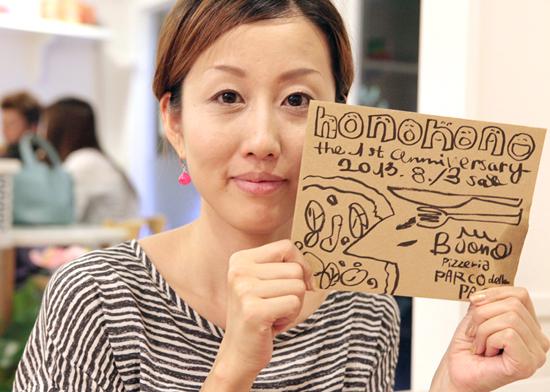 honohono
the 1st anniversary
2013. 8. 13 sat
Buono
Pizzeria
PARCO della
PA